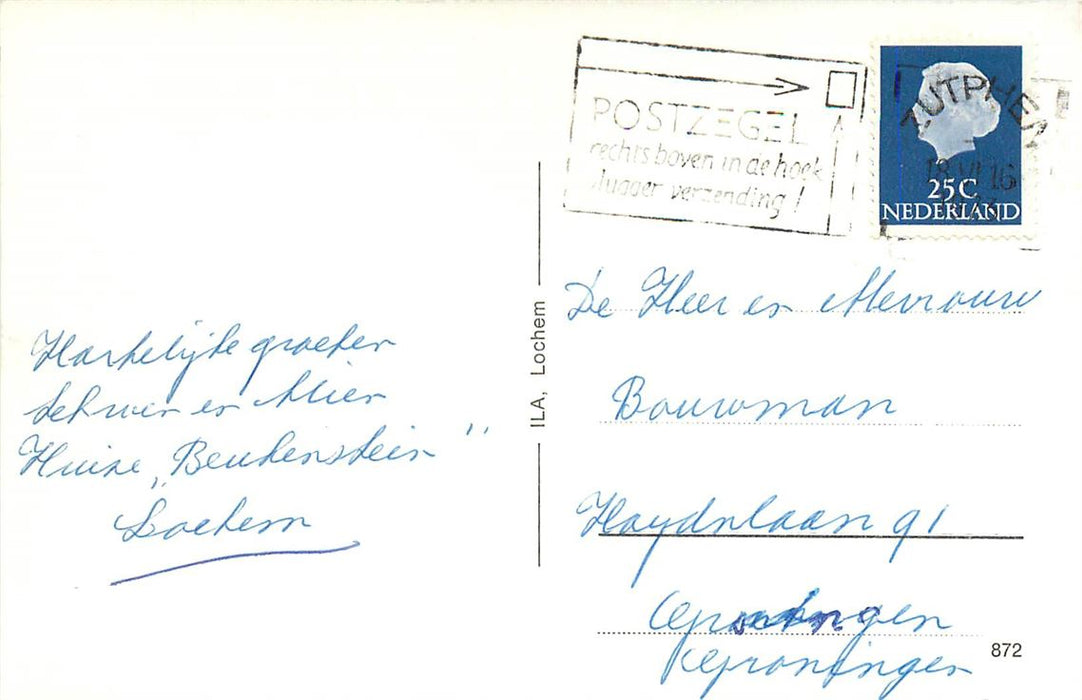 POSTZEGEL
rechts boven in de hoek
vlugger verzending!
ZUTPHEN
18 VI 16
25C
NEDERLAND
Hartelijke groeten
en Mien
Huize „Beukenstein”
Lochem
ILA, Lochem
De Heer en Mevrouw
Bouwman
Haydnlaan 91
Groningen
Groningen
872